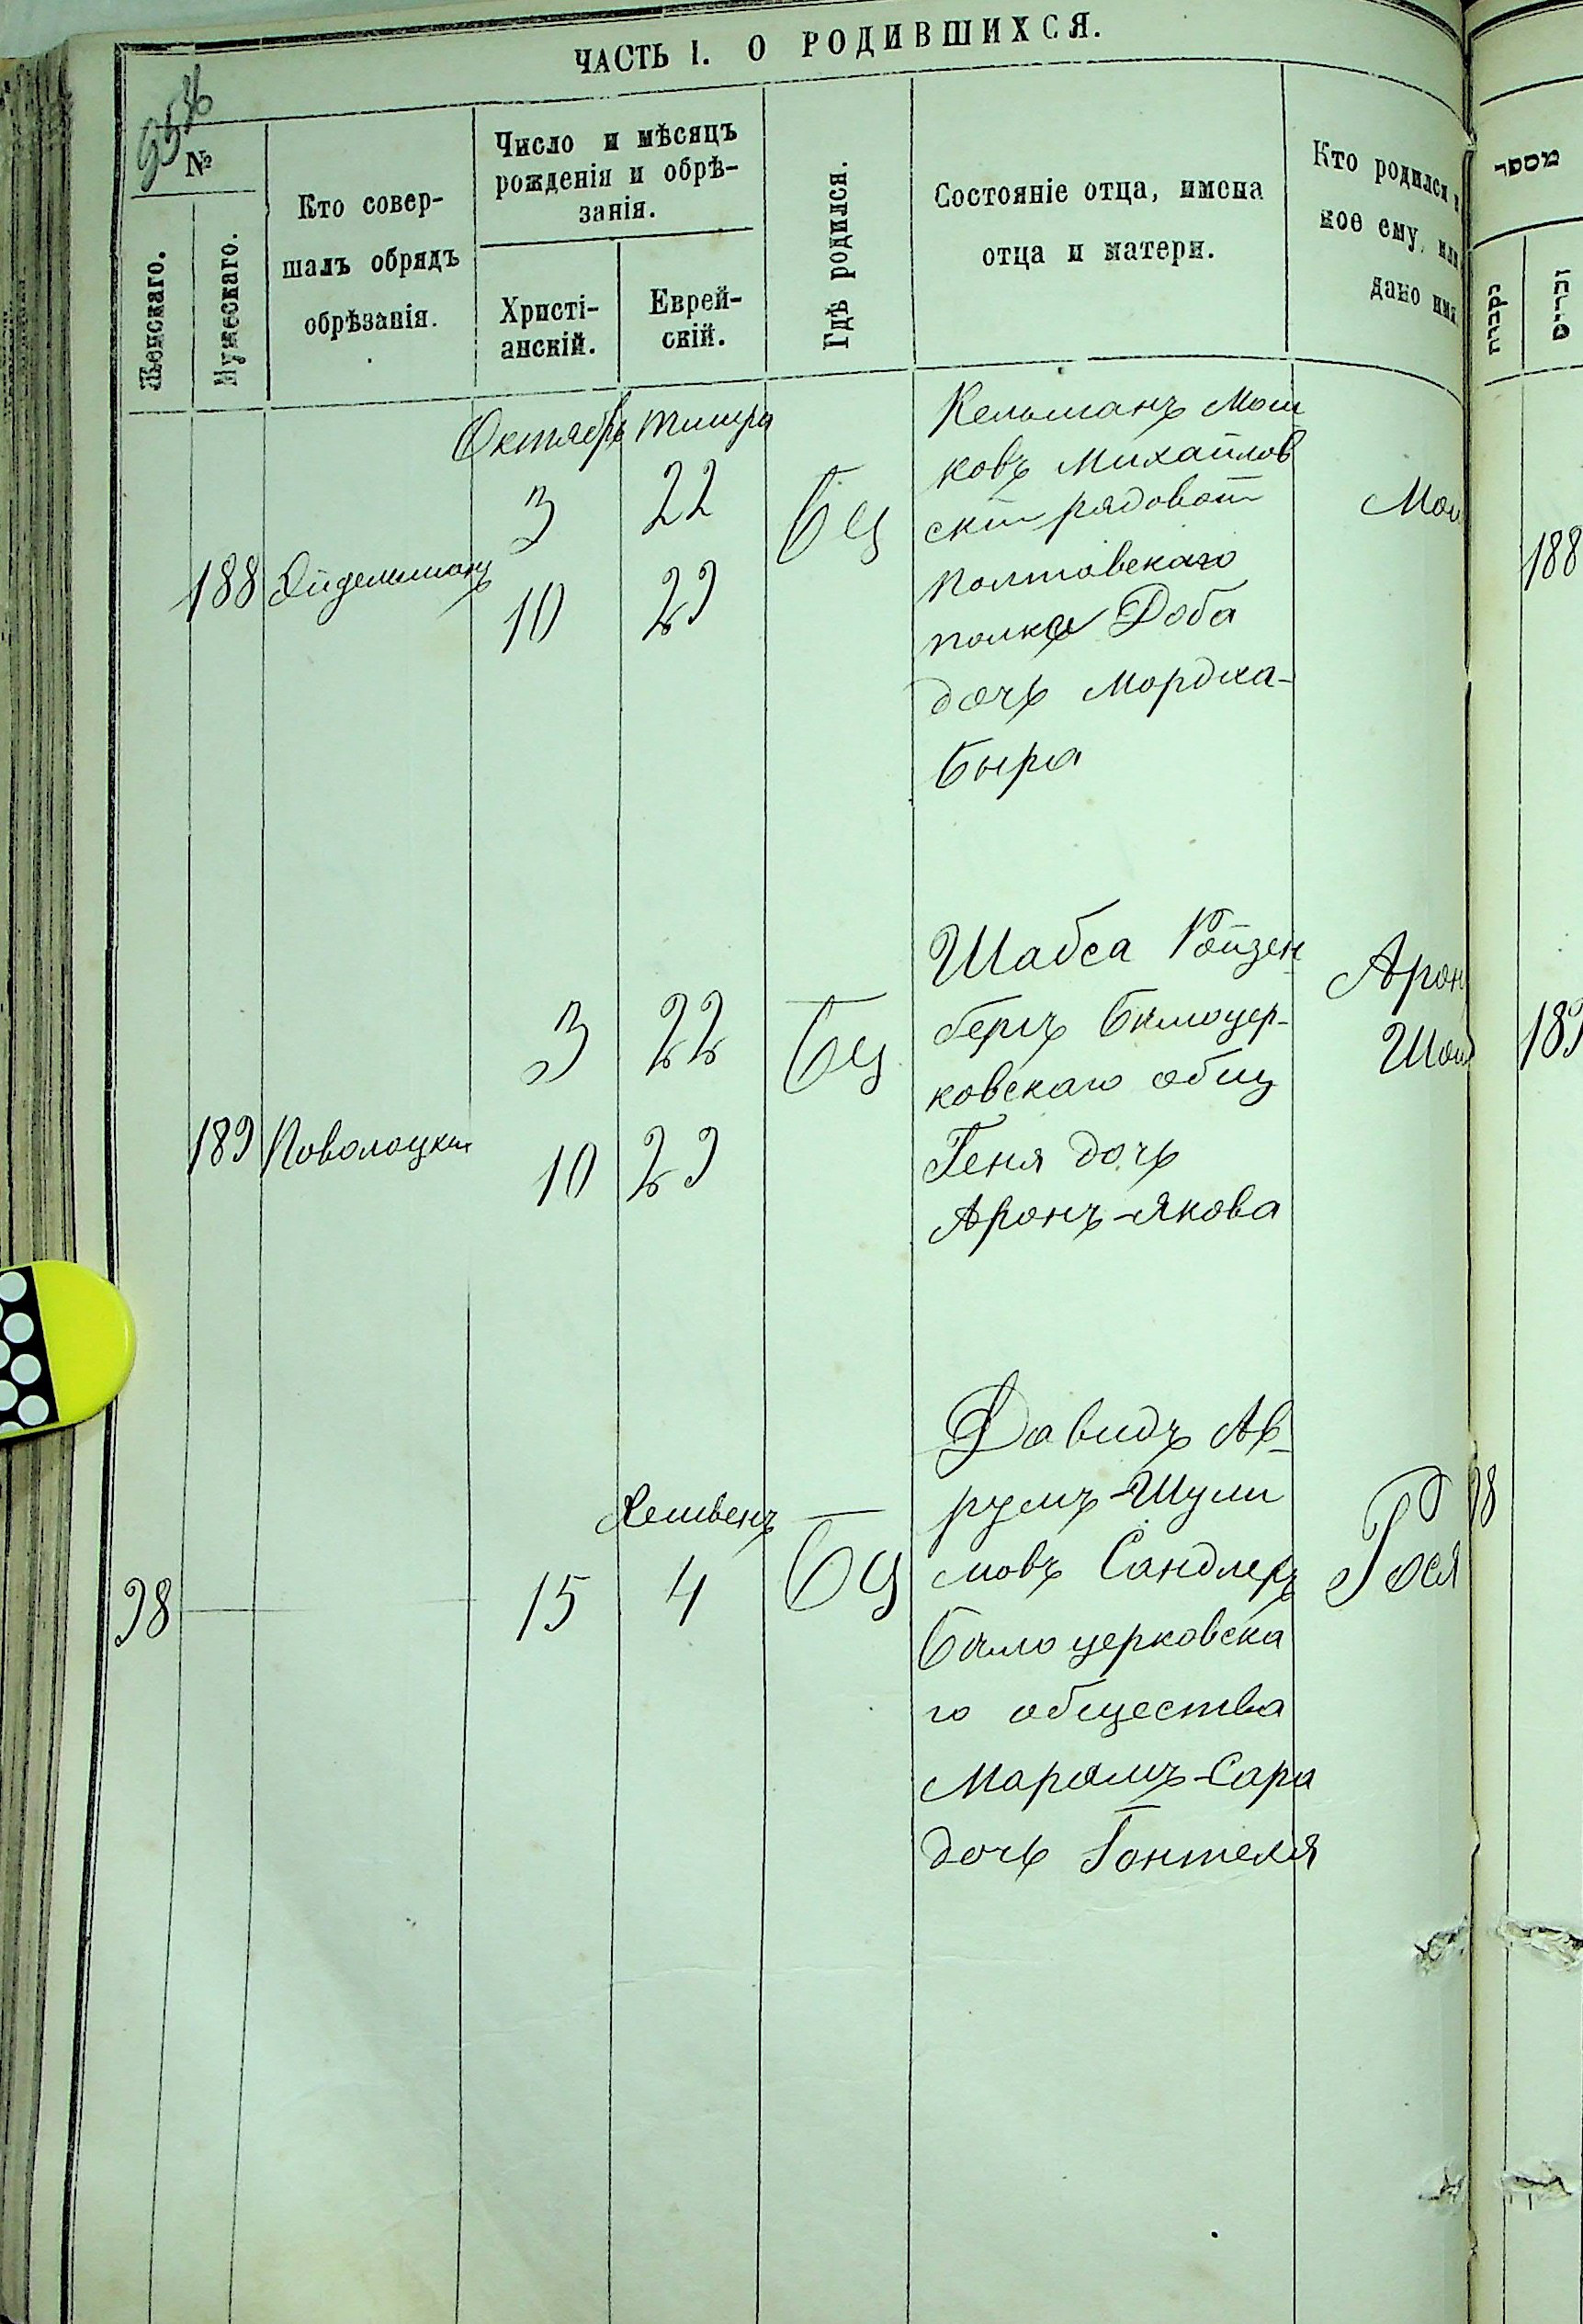 ЧАСТЬ I. О РОДИВШИХСЯ.
№
Женскаго.
Мужескаго.
Кто совер-
шалъ обрядъ
обрѣзанія.
Число и мѣсяцъ
рожденія и обрѣ-
занія.
Христі-
анскій.
Еврей-
скій.
Гдѣ родился.
Состояніе отца, имена
отца и матери.
Кто родился
кое ему, или
дано имя.
מספר
נקבות
זכרים
Октябрь Тишри
188
3 22
10 29
БЦ
Кельманъ Мош
ковъ Михайлов
скій рядовой
Полтавскаго
полка Доба
дочь Мордка-
Быра
Мош
188
189 Поволоцкій
3 22
10 29
БЦ
Шабса Ройзен
бергъ Бѣлоцер-
ковскаго общ
Геня дочь
Аронъ-Якова
Арон
Шол
189
98
15
Хешвенъ
4
БЦ
Давидъ Ав-
румъ-Шули
мовъ Сандлеръ
Бѣлоцерковска
го общества
Марямъ-Сара
дочь Гонтеля
Рося
98